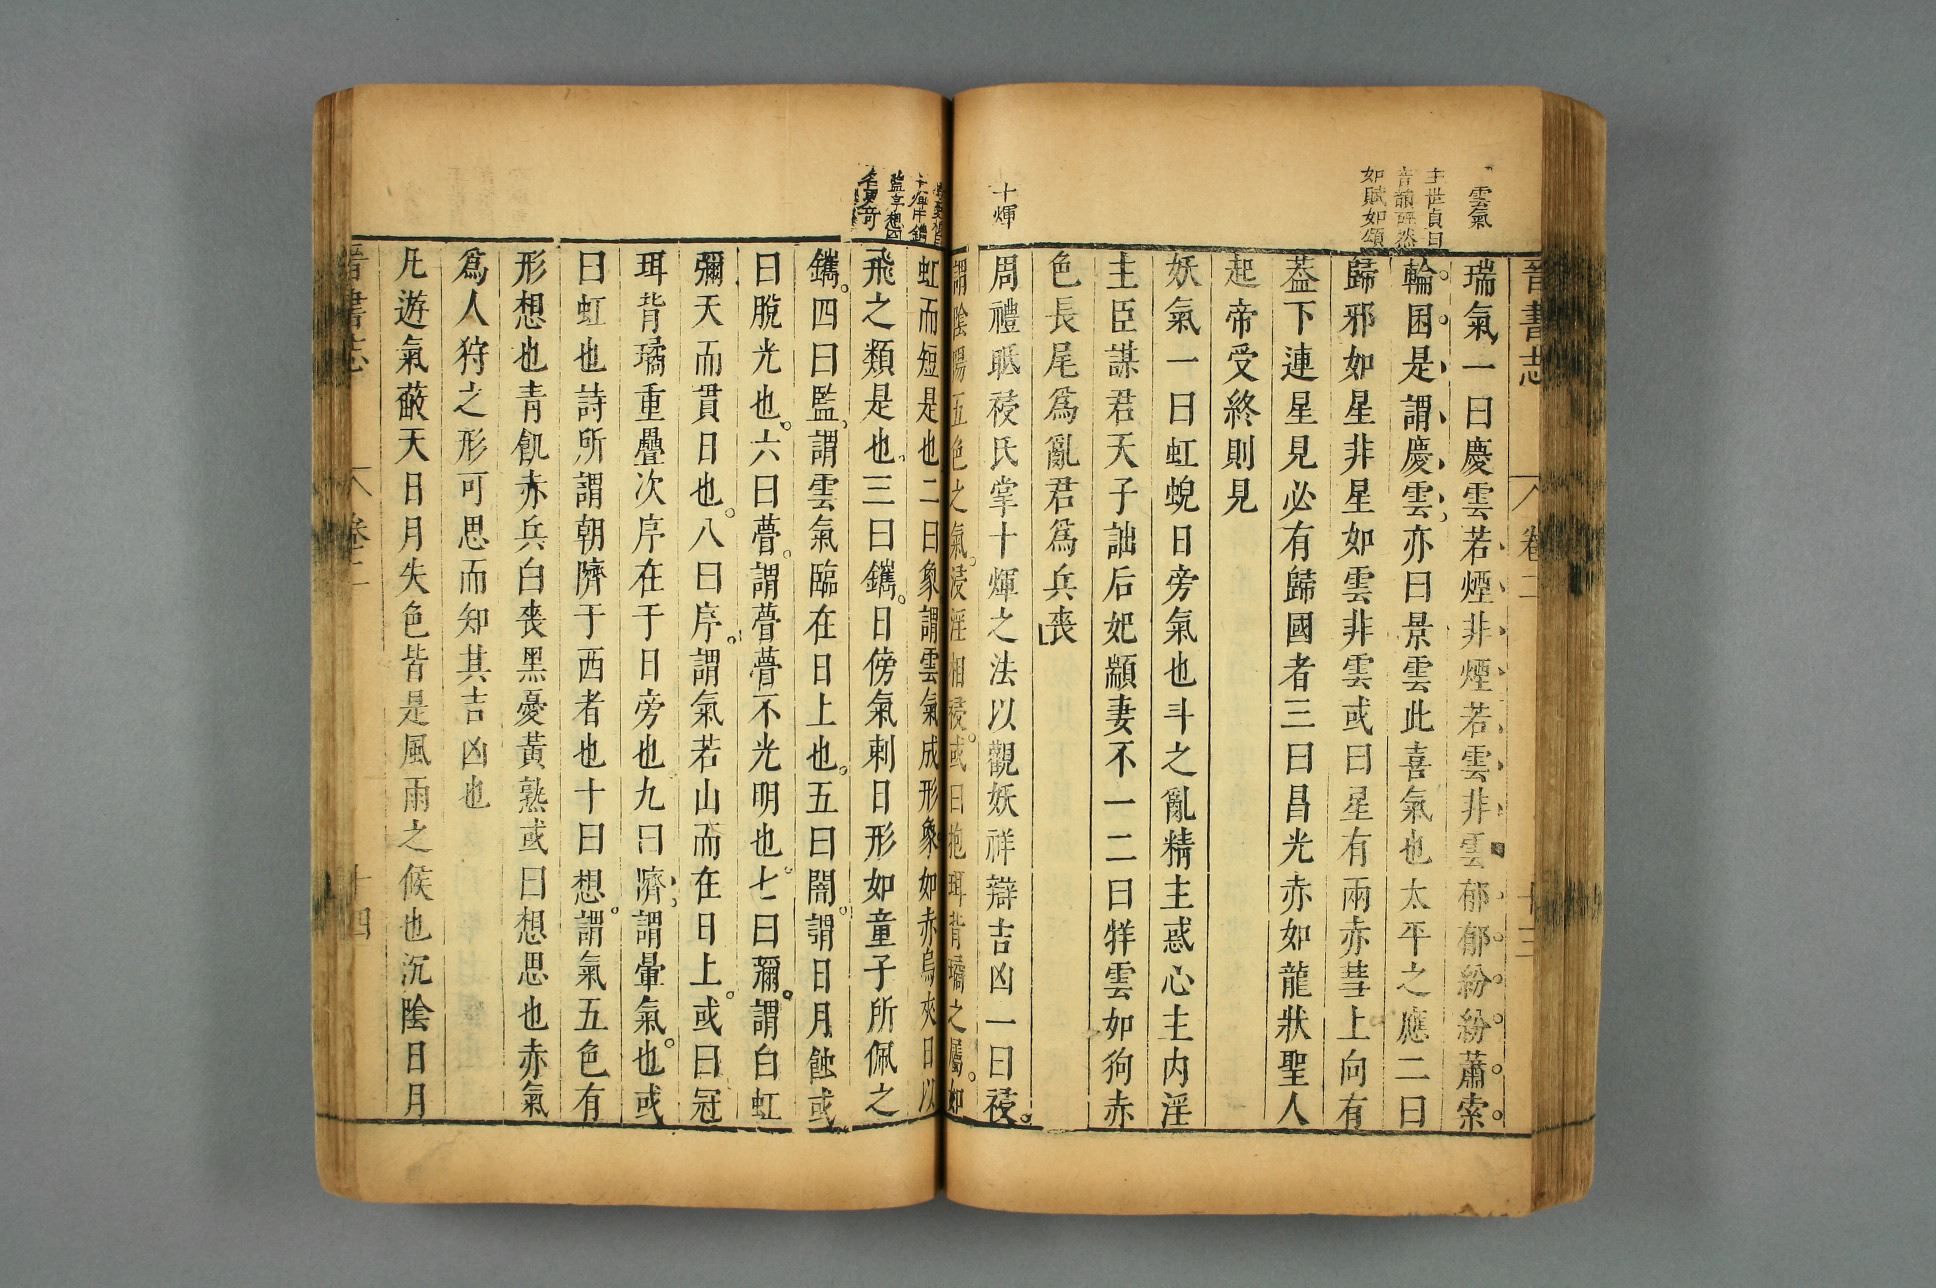 雲氣
王世貞曰
如賦如頌
晉書志
卷二
十三
瑞氣一曰慶雲若煙非煙若雲非雲郁郁紛紛蕭索
輪囷是謂慶雲亦曰景雲此喜氣也太平之應二曰
歸邪如星非星如雲非雲或曰星有兩赤彗上向有
蓋下連星見必有歸國者三曰昌光赤如龍狀聖人
起帝受終則見
妖氣一曰虹蜺日旁氣也斗之亂精主惑心主内淫
主臣謀君天子詘后妃顓妻不一二曰牂雲如狗赤
色長尾爲亂君爲兵喪
十煇
周禮眡祲氏掌十煇之法以觀妖祥辯吉凶一曰祲
謂陰陽五色之氣浸淫相祲或曰抱珥背璚之屬如
虹而短是也二曰象謂雲氣成形象如赤烏夾日以
飛之類是也三曰鑴日傍氣刺日形如童子所佩之
鑴四曰監謂雲氣臨在日上也五曰闇謂日月蝕或
曰脫光也六曰瞢謂瞢瞢不光明也七曰彌謂白虹
彌天而貫日也八曰序謂氣若山而在日上或曰冠
珥背璚重疊次序在于日旁也九曰隮謂暈氣也或
曰虹也詩所謂朝隮于西者也十曰想謂氣五色有
形想也青飢赤兵白喪黑憂黃熟或曰想思也赤氣
爲人狩之形可思而知其吉凶也
凡遊氣蔽天日月失色皆是風雨之候也沉陰日月
晉書志
卷二
十四